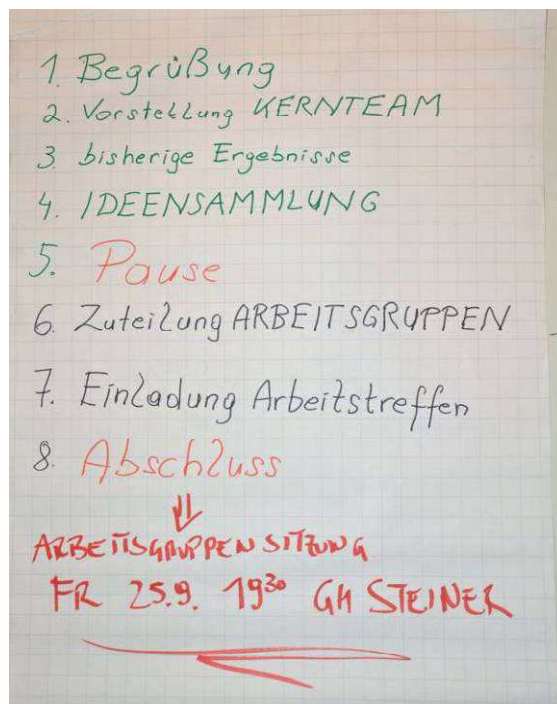 1. Begrüßung
2. Vorstellung KERNTEAM
3. bisherige Ergebnisse
4. IDEENSAMMLUNG
5. Pause
6. Zuteilung ARBEITSGRUPPEN
7. Einladung Arbeitstreffen
8. Abschluss
ARBEITSGRUPPENSITZUNG
FR 25.9. 19³⁰ GH STEINER